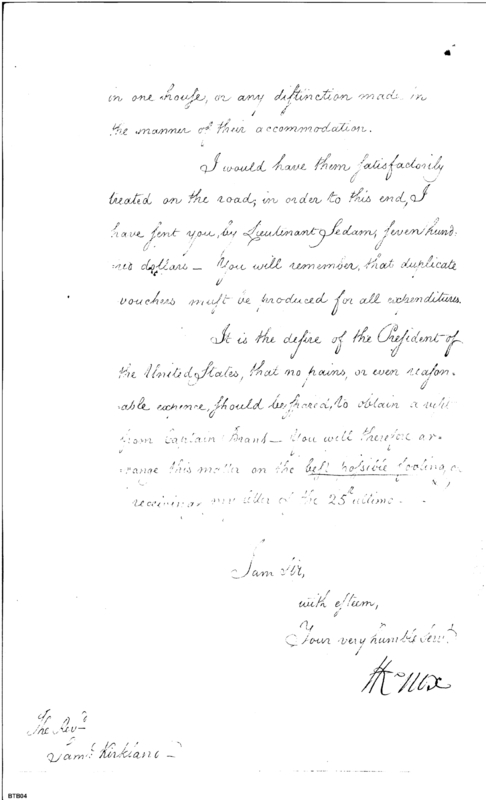 in one house, or any distinction made in
the manner of their accommodation.
I would have them satisfactorily
treated on the road, in order to this end, I
have sent you, by Lieutenant Sedam, seven hund-
red dollars — You will remember, that duplicate
vouchers must be produced for all expenditures.
It is the desire of the President of
the United States, that no pains, or even reason-
able expence, should be spared, to obtain a visit
from Captain Brant — You will therefore ar-
range this matter on the best possible footing,
receiving your letter of the 25th ultimo.
I am Sir,
with esteem,
Your very humble Servt.
HKnox
The Revd.
Saml. Kirkland
BTB04